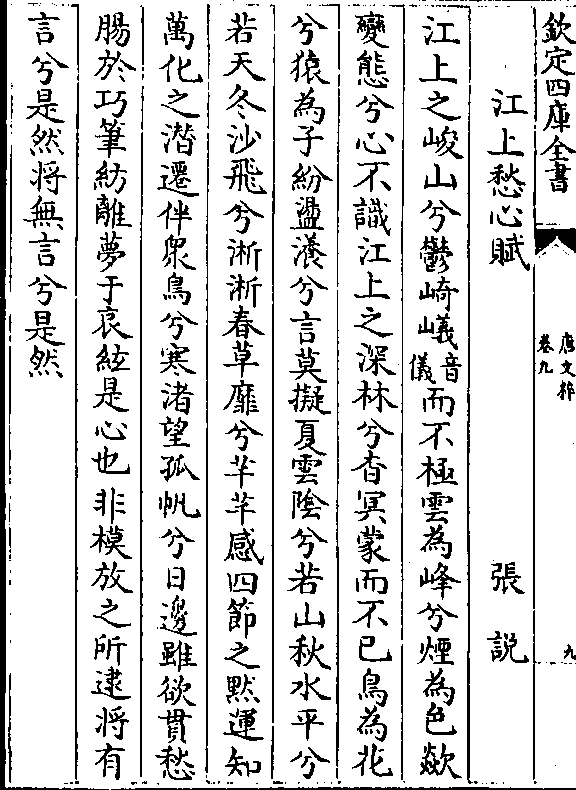 欽定四庫全書
唐文粹
卷九
九
江上愁心賦 張說
江上之峻山兮鬱崎嶬音儀而不極雲為峰兮煙為色歘
變態兮心不識江上之深林兮杳冥蒙而不已鳥為花
兮猿為子紛盪瀁兮言莫擬夏雲陰兮若山秋水平兮
若天冬沙飛兮淅淅春草靡兮芊芊感四節之黙運知
萬化之潛遷伴眾鳥兮寒渚望孤帆兮日邊雖欲貫愁
腸於巧筆紡離夢于哀絃是心也非模放之所逮將有
言兮是然將無言兮是然